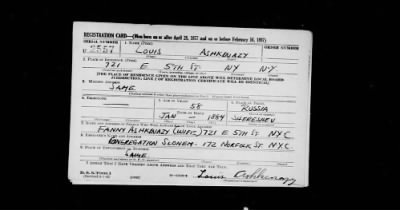 REGISTRATION CARD—(Men born on or after April 28, 1877 and on or before February 16, 1897)
SERIAL NUMBER 1. NAME (Print) ORDER NUMBER
U 2557 LOUIS ASHKENAZY
2. PLACE OF RESIDENCE (Print)
721 E 5TH ST. NY NY
[THE PLACE OF RESIDENCE GIVEN ON THE LINE ABOVE WILL DETERMINE LOCAL BOARD
JURISDICTION; LINE 2 OF REGISTRATION CERTIFICATE WILL BE IDENTICAL]
3. MAILING ADDRESS
SAME
4. TELEPHONE 5. AGE IN YEARS 6. PLACE OF BIRTH
58 RUSSIA
DATE OF BIRTH
JAN 1884
7. NAME AND ADDRESS OF PERSON WHO WILL ALWAYS KNOW YOUR ADDRESS
FANNY ASHKENAZY (WIFE) 721 E 5TH ST. NYC
8. EMPLOYER'S NAME AND ADDRESS
CONGREGATION SLONEM - 172 NORFOLK ST NYC
9. PLACE OF EMPLOYMENT OR BUSINESS
SAME
I AFFIRM THAT I HAVE VERIFIED ABOVE ANSWERS AND THAT THEY ARE TRUE.
D. S. S. Form 1
Louis Ashkenazy